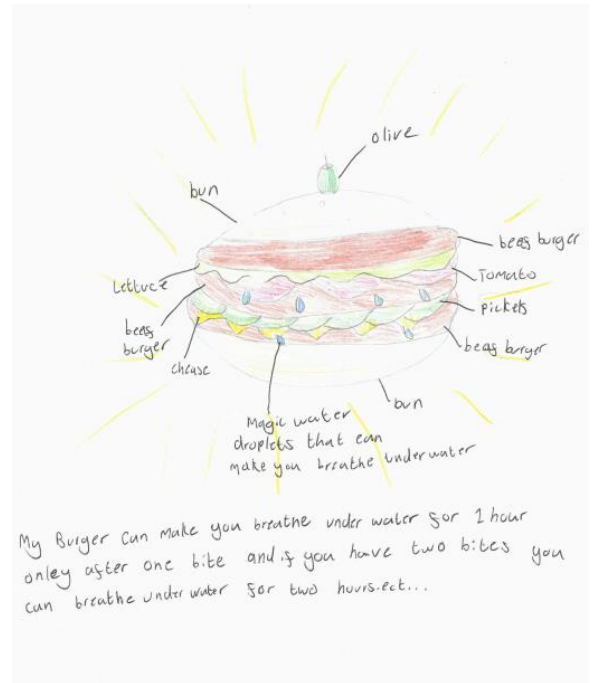 olive
bun
beeg burger
Lettuce
Tomato
pickels
beeg
burger
chease
beeg burger
bun
Magic water
droplets that can
make you breathe under water
My Burger Can make you breathe under water for 1 hour
onley after one bite and if you have two bites you
can breathe under water for two huurs.ect...